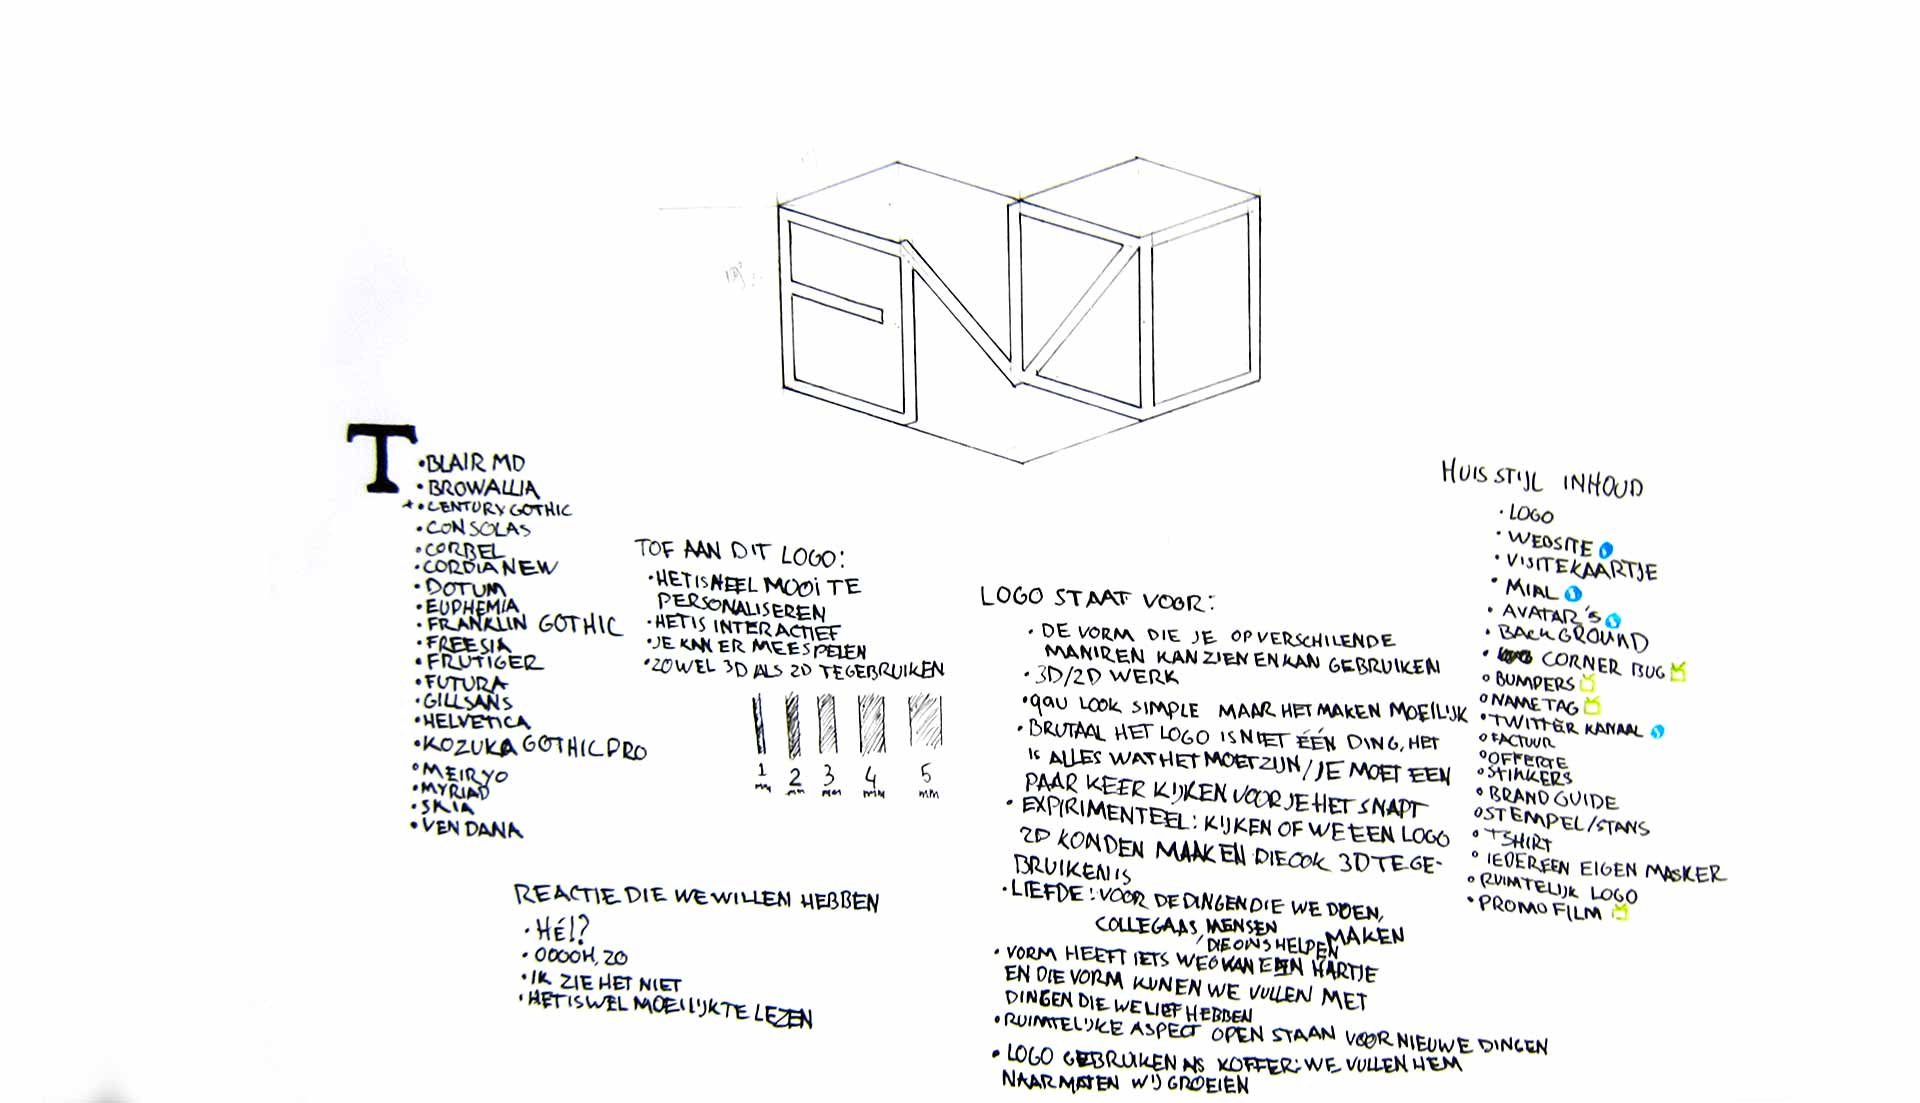 T
• BLAIR MD
• BROWALLIA
* • CENTURY GOTHIC
• CONSOLAS
• CORBEL
• CORDIA NEW
• DOTUM
• EUPHEMIA
• FRANKLIN GOTHIC
• FREESIA
• FRUTIGER
• FUTURA
• GILLSANS
• HELVETICA
• KOZUKA GOTHIC PRO
• MEIRYO
• MYRIAD
• SKIA
• VENDANA
TOF AAN DIT LOGO:
• HET IS HEEL MOOI TE
PERSONALISEREN
• HET IS INTERACTIEF
• JE KAN ER MEE SPELEN
• ZOWEL 3D ALS 2D TE GEBRUIKEN
1 2 3 4 5
mm mm mm mm mm
REACTIE DIE WE WILLEN HEBBEN
• HÉ!?
• OOOOH, ZO
• IK ZIE HET NIET
• HET IS WEL MOEILIJK TE LEZEN
LOGO STAAT VOOR:
• DE VORM DIE JE OP VERSCHILENDE
MANIREN KAN ZIEN EN KAN GEBRUIKEN
• 3D/2D WERK
• qau LOOK SIMPLE MAAR HET MAKEN MOEILIJK
• BRUTAAL HET LOGO IS NIET ÉÉN DING, HET
IS ALLES WAT HET MOET ZIJN / JE MOET EEN
PAAR KEER KIJKEN VOOR JE HET SNAPT
• EXPIRIMENTEEL: KIJKEN OF WE EEN LOGO
2D KONDEN MAAKEN DIE OOK 3D TE GE-
BRUIKEN IS
• LIEFDE: VOOR DE DINGEN DIE WE DOEN,
COLLEGAAS, MENSEN MAKEN
/ DIE ONS HELPEN
• VORM HEEFT IETS WEG VAN EEN HARTJE
EN DIE VORM KUNEN WE VULLEN MET
DINGEN DIE WE LIEF HEBBEN
• RUIMTELIJKE ASPECT OPEN STAAN VOOR NIEUWE DINGEN
• LOGO GEBRUIKEN ALS KOFFER: WE VULLEN HEM
NAAR MATEN WIJ GROEIEN
HUISSTIJL INHOUD
• LOGO
• WEBSITE
• VISITEKAARTJE
• MIAL
• AVATAR'S
• BACKGROUND
• CORNER BUG
• BUMPERS
• NAMETAG
• TWITTER KANAAL
• FACTUUR
• OFFERTE
• STIKKERS
• BRAND GUIDE
• STEMPEL/STANS
• TSHIRT
• IEDEREEN EIGEN MASKER
• RUIMTELIJK LOGO
• PROMO FILM